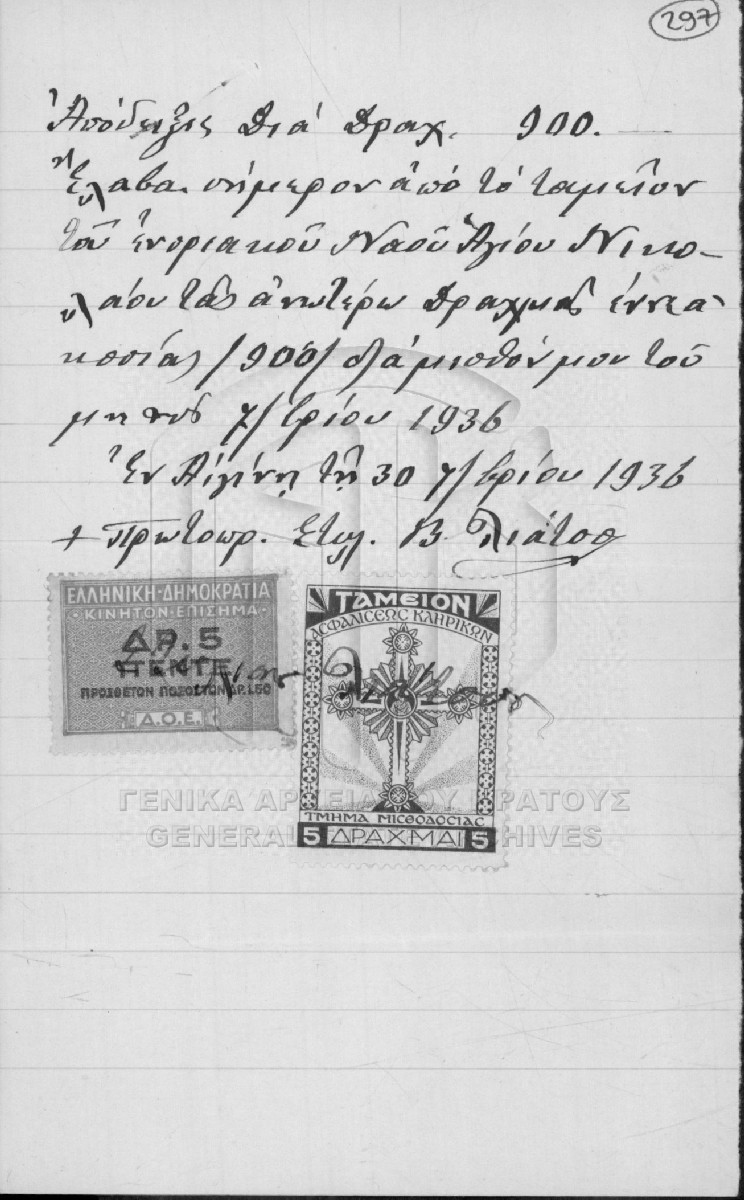 297
Ἀπόδειξις Διά Δραχ. 900.
Ἔλαβα σήμερον ἀπό τό ταμεῖον
τοῦ ἐνοριακοῦ Ναοῦ Ἁγίου Νικο-
λάου τάς ἀνωτέρω Δραχμάς ἐννεα-
κοσίας /900/ διά μισθόν μου τοῦ
μηνός 7/βρίου 1936
Ἐν Αἰγίνῃ τῇ 30 7/βρίου 1936
+ πρωτοπρ. Στυλ. Β. Λιάτσος
ΕΛΛΗΝΙΚΗ·ΔΗΜΟΚΡΑΤΙΑ
ΚΙΝΗΤΟΝ·ΕΠΙΣΗΜΑ
ΔΡ. 5
ΠΕΝΤΕ
ΠΡΟΣΘΕΤΟΝ ΠΟΣΟΣΤΟΝ ΔΡ. 1.50
Δ.Ο.Ε.
ΤΑΜΕΙΟΝ
ΑΣΦΑΛΙΣΕΩΣ ΚΛΗΡΙΚΩΝ
ΤΜΗΜΑ ΜΙΣΘΟΔΟΣΙΑΣ
5 ΔΡΑΧΜΑΙ 5
ΓΕΝΙΚΑ ΑΡΧΕΙΑ ΤΟΥ ΚΡΑΤΟΥΣ
GENERAL ARCHIVES